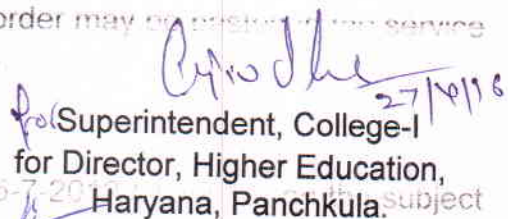 order may be pasted in the service
27/4/16
Superintendent, College-I
for Director, Higher Education,
Haryana, Panchkula.
subject